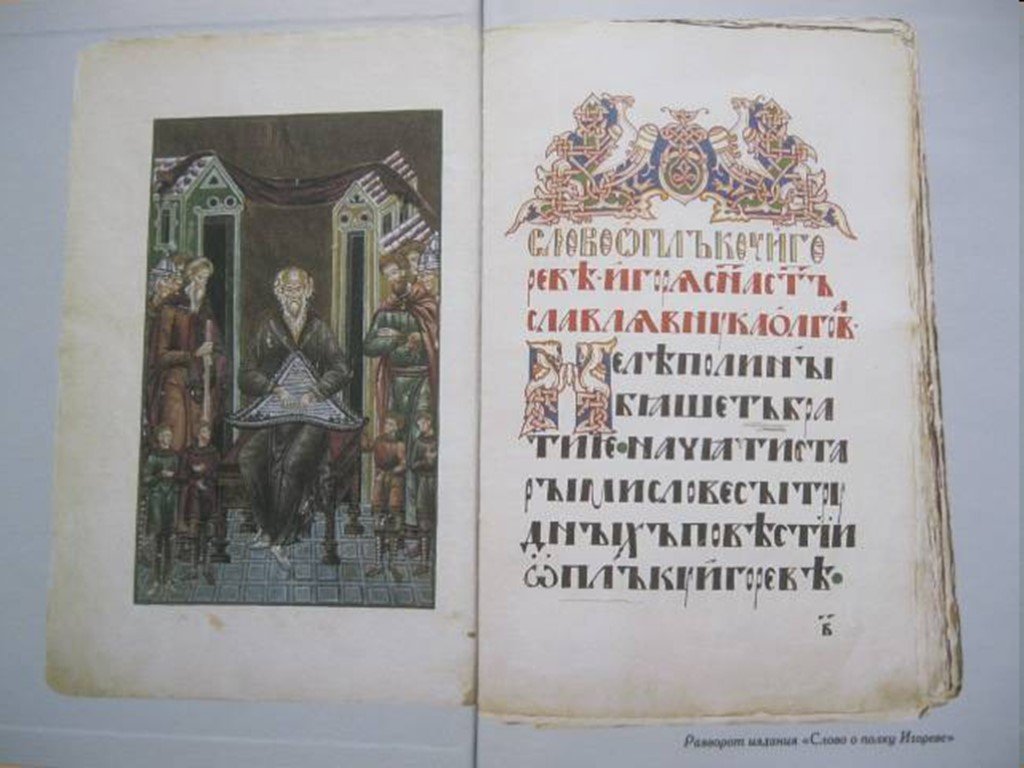 СЛОВООПЛЪКОУИГО
РЕВѢ·ИГОРѦСН҃АСТ҃Ъ
СЛАВЛѦВНУКАОЛГОВ·А
НЕЛѢПОЛИНЫ
БЯШЕТЬБРА
ТИѤ·НАЧѦТИСТА
РЫМИСЛОВЕСЫТРꙊ
ДНЫХЪПОВѢСТІЙ
ѾПЛЪКꙊИГОРЕВѢ·
в҃
Разворот издания «Слово о полку Игореве»